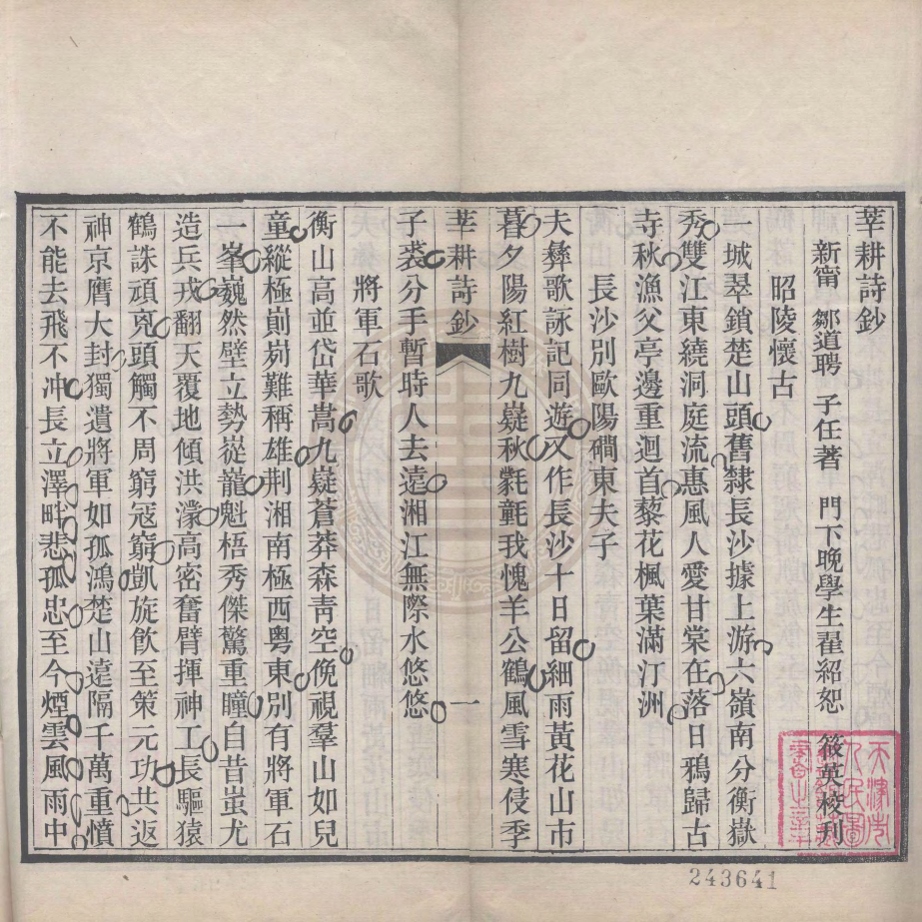 莘耕詩鈔
新甯 鄒道聘 子任著 門下晚學生翟紹恕 筱英校刊
昭陵懷古
一城翠鎖楚山頭舊隸長沙據上游六嶺南分衡嶽
秀雙江東繞洞庭流惠風人愛甘棠在落日鴉歸古
寺秋漁父亭邊重迴首藜花楓葉滿汀洲
長沙別歐陽磵東夫子
夫彝歌詠記同遊又作長沙十日留細雨黃花山市
暮夕陽紅樹九嶷秋氃氋我愧羊公鶴風雪寒侵季
莘耕詩鈔 一
子裘分手暫時人去遠湘江無際水悠悠
將軍石歌
衡山高並岱華嵩九嶷蒼莽森靑空俛視羣山如兒
童縱極崱屴難稱雄荆湘南極西粵東別有將軍石
一峯巍然壁立勢嵸龍魁梧秀傑驚重瞳自昔蚩尤
造兵戎翻天覆地傾洪濛高密奮臂揮神工長驅猿
鶴誅頑兇頭觸不周窮寇窮凱旋飮至策元功共返
神京膺大封獨遺將軍如孤鴻楚山遠隔千萬重憤
不能去飛不冲長立澤畔悲孤忠至今煙雲風雨中
天津市人民圖書館
243641